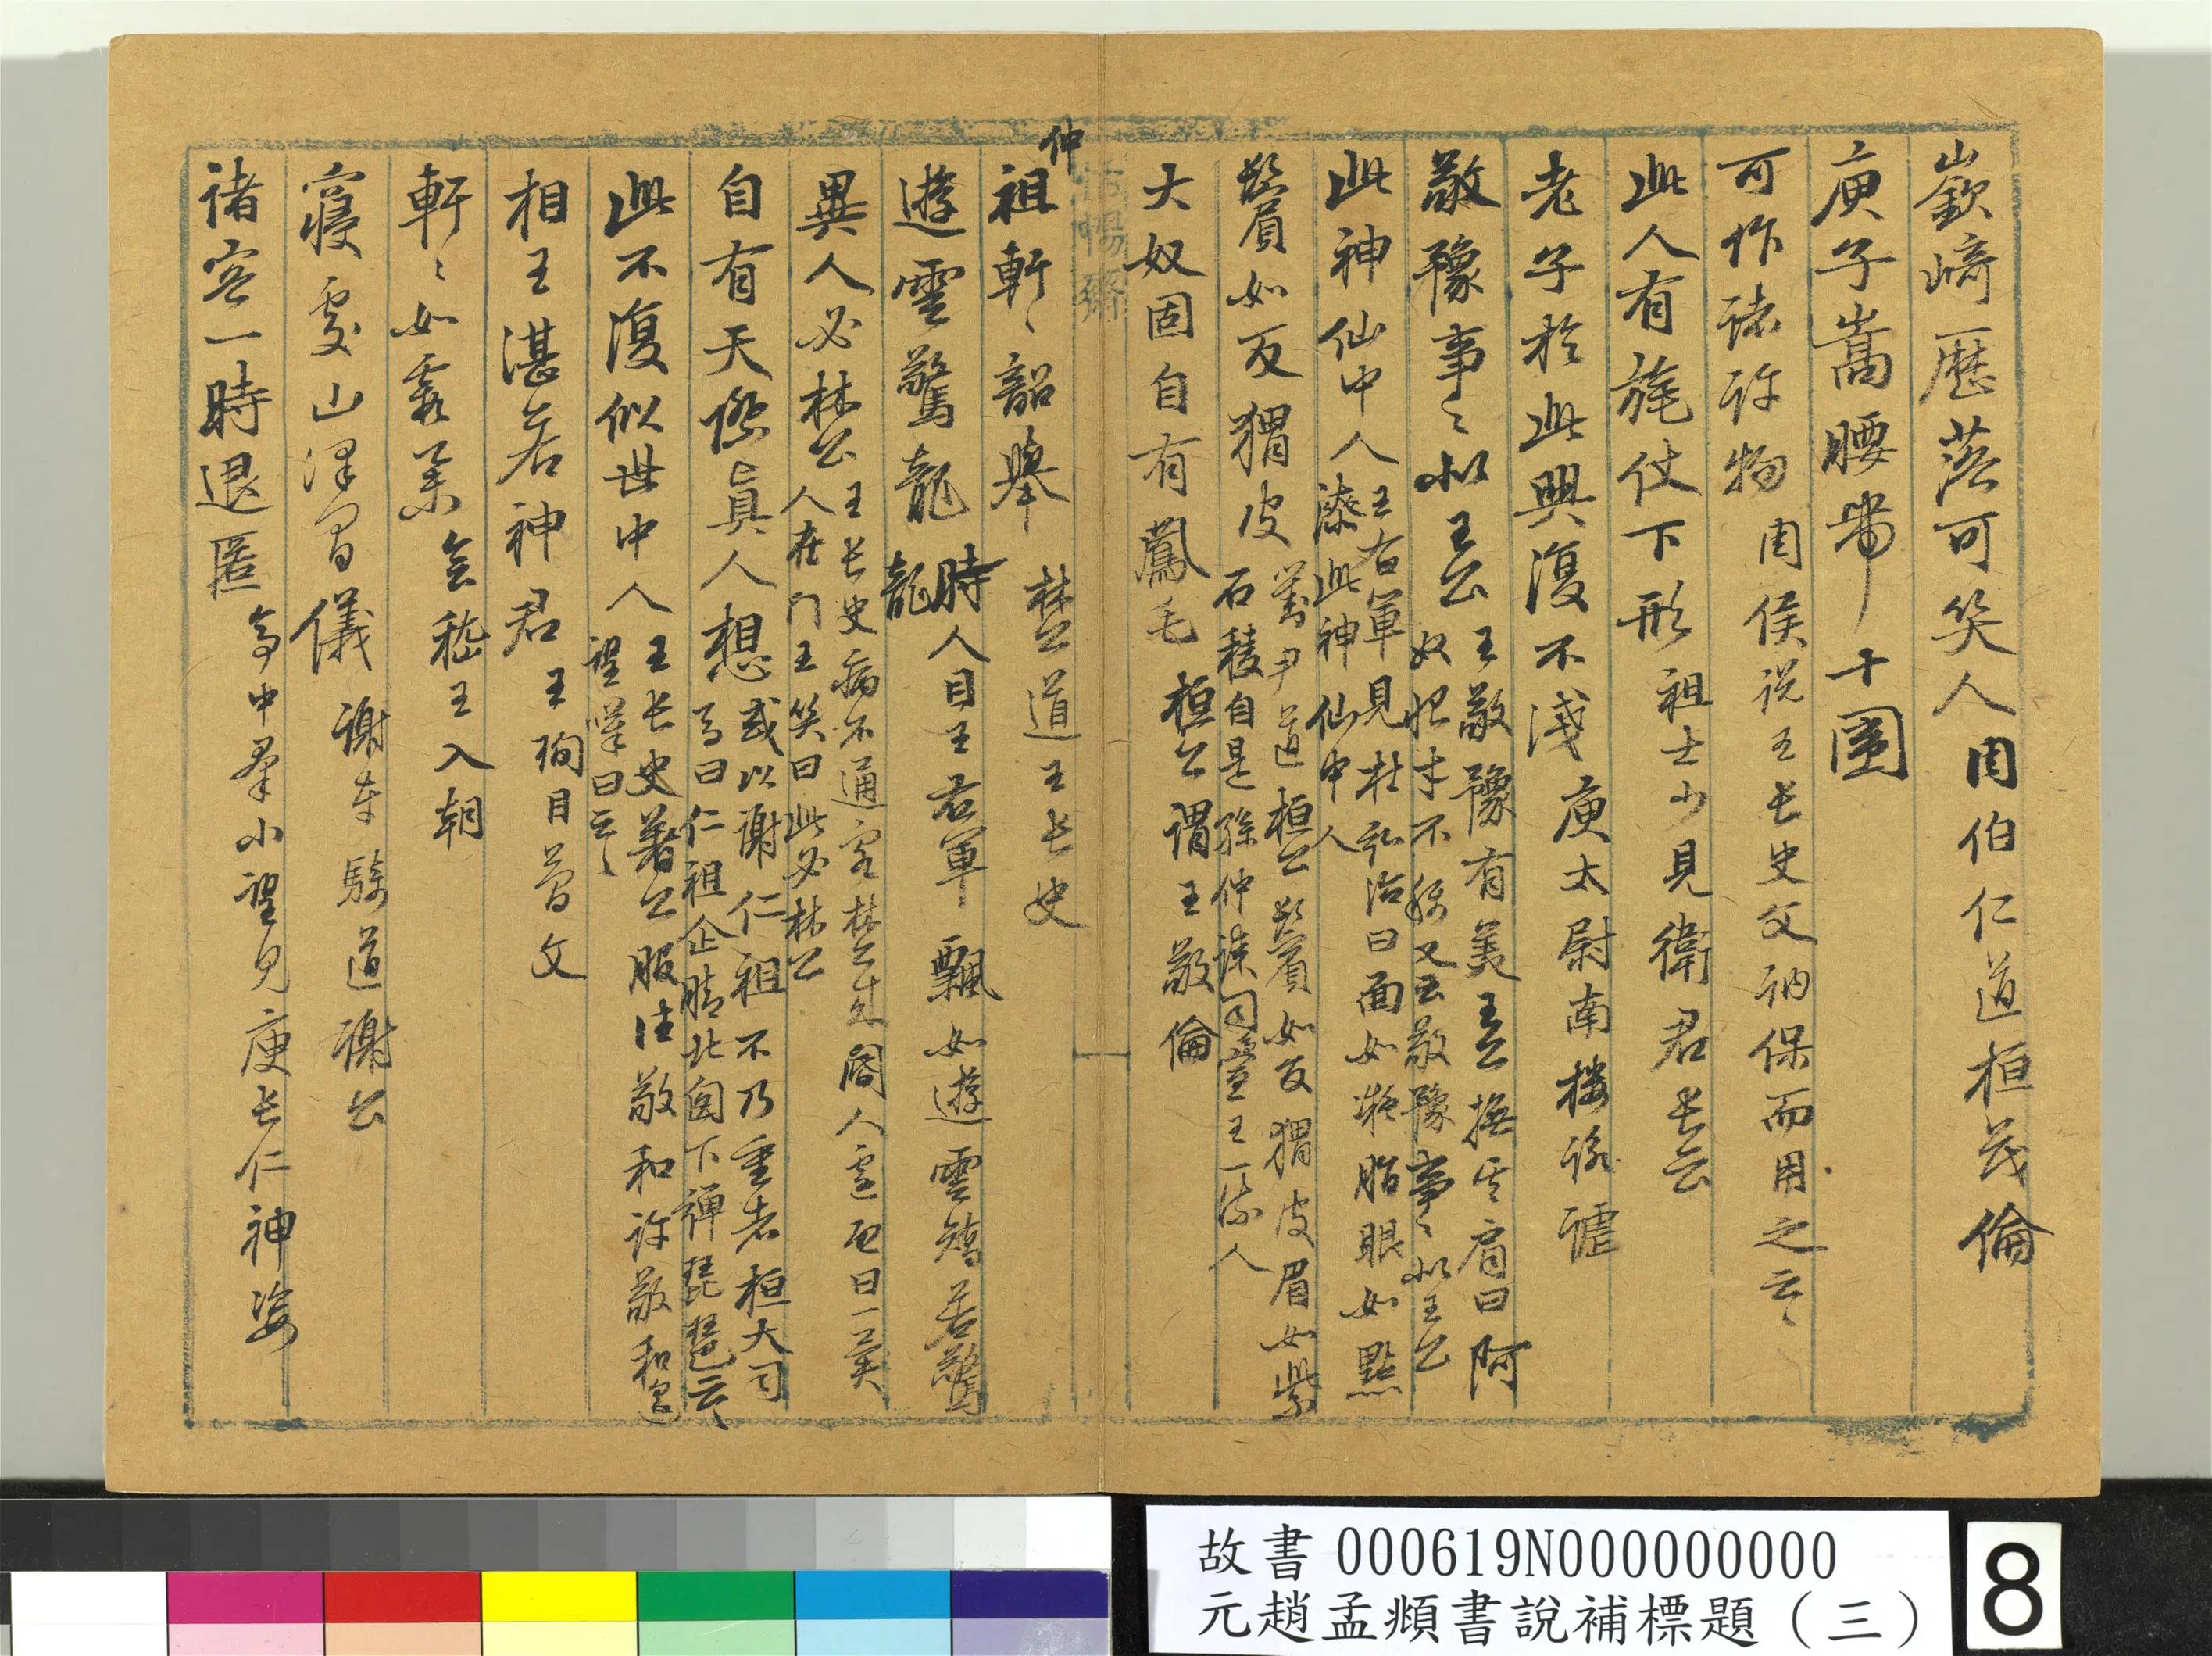 嶔崎歷落可笑人周伯仁道桓茂倫
庾子嵩腰帶十圍
可作諸許物周侯說王長史父祠保而用之云々
此人有旄仗下形祖士少見衛君長云
老子於此興復不淺庾太尉南樓詠謔
敬豫事々似王公
王敬豫有美王公撫其肩曰阿
奴恨才不稱又云敬豫事々似王公
此神仙中人
王右軍見杜弘治曰面如凝脂眼如點
漆此神仙中人
鬢眉如反猬皮
劉尹道桓公鬢如反猬皮眉如紫
石稜自是孫仲謀司馬宣王一流人
大奴固自有鳳毛桓公謂王敬倫
怡暢齋
仲
祖軒々韶舉林公道王長史
遊雲驚龍
時人目王右軍飄如遊雲矯若驚
龍
異人必林公
王長史病不通客林公來閽人遽啟曰一異
人在門王笑曰此必林公
自有天際真人想
或以謝仁祖不乃重者桓大司
馬曰仁祖企腳北囪下彈琵琶云々
此不復似世中人
王長史著公服往敬和許敬和遙
望嘆曰云々
相王湛若神君王珣目簡文
軒々如霞舉會稽王入朝
寢處山澤間儀謝車騎道謝公
諸客一時退匿亭中群小望見庾長仁神姿
故書000619N000000000
元趙孟頫書說補標題（三）
8